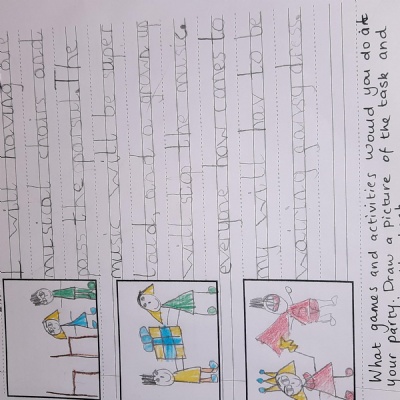 I will having
musical chairs and
pass the parsul. The
music will be uper
loud, and a grown up
will stop the music.
everyone how comes to
my will hav to be
waring
What games and activities would you do at
your party. Draw a picture of the task and